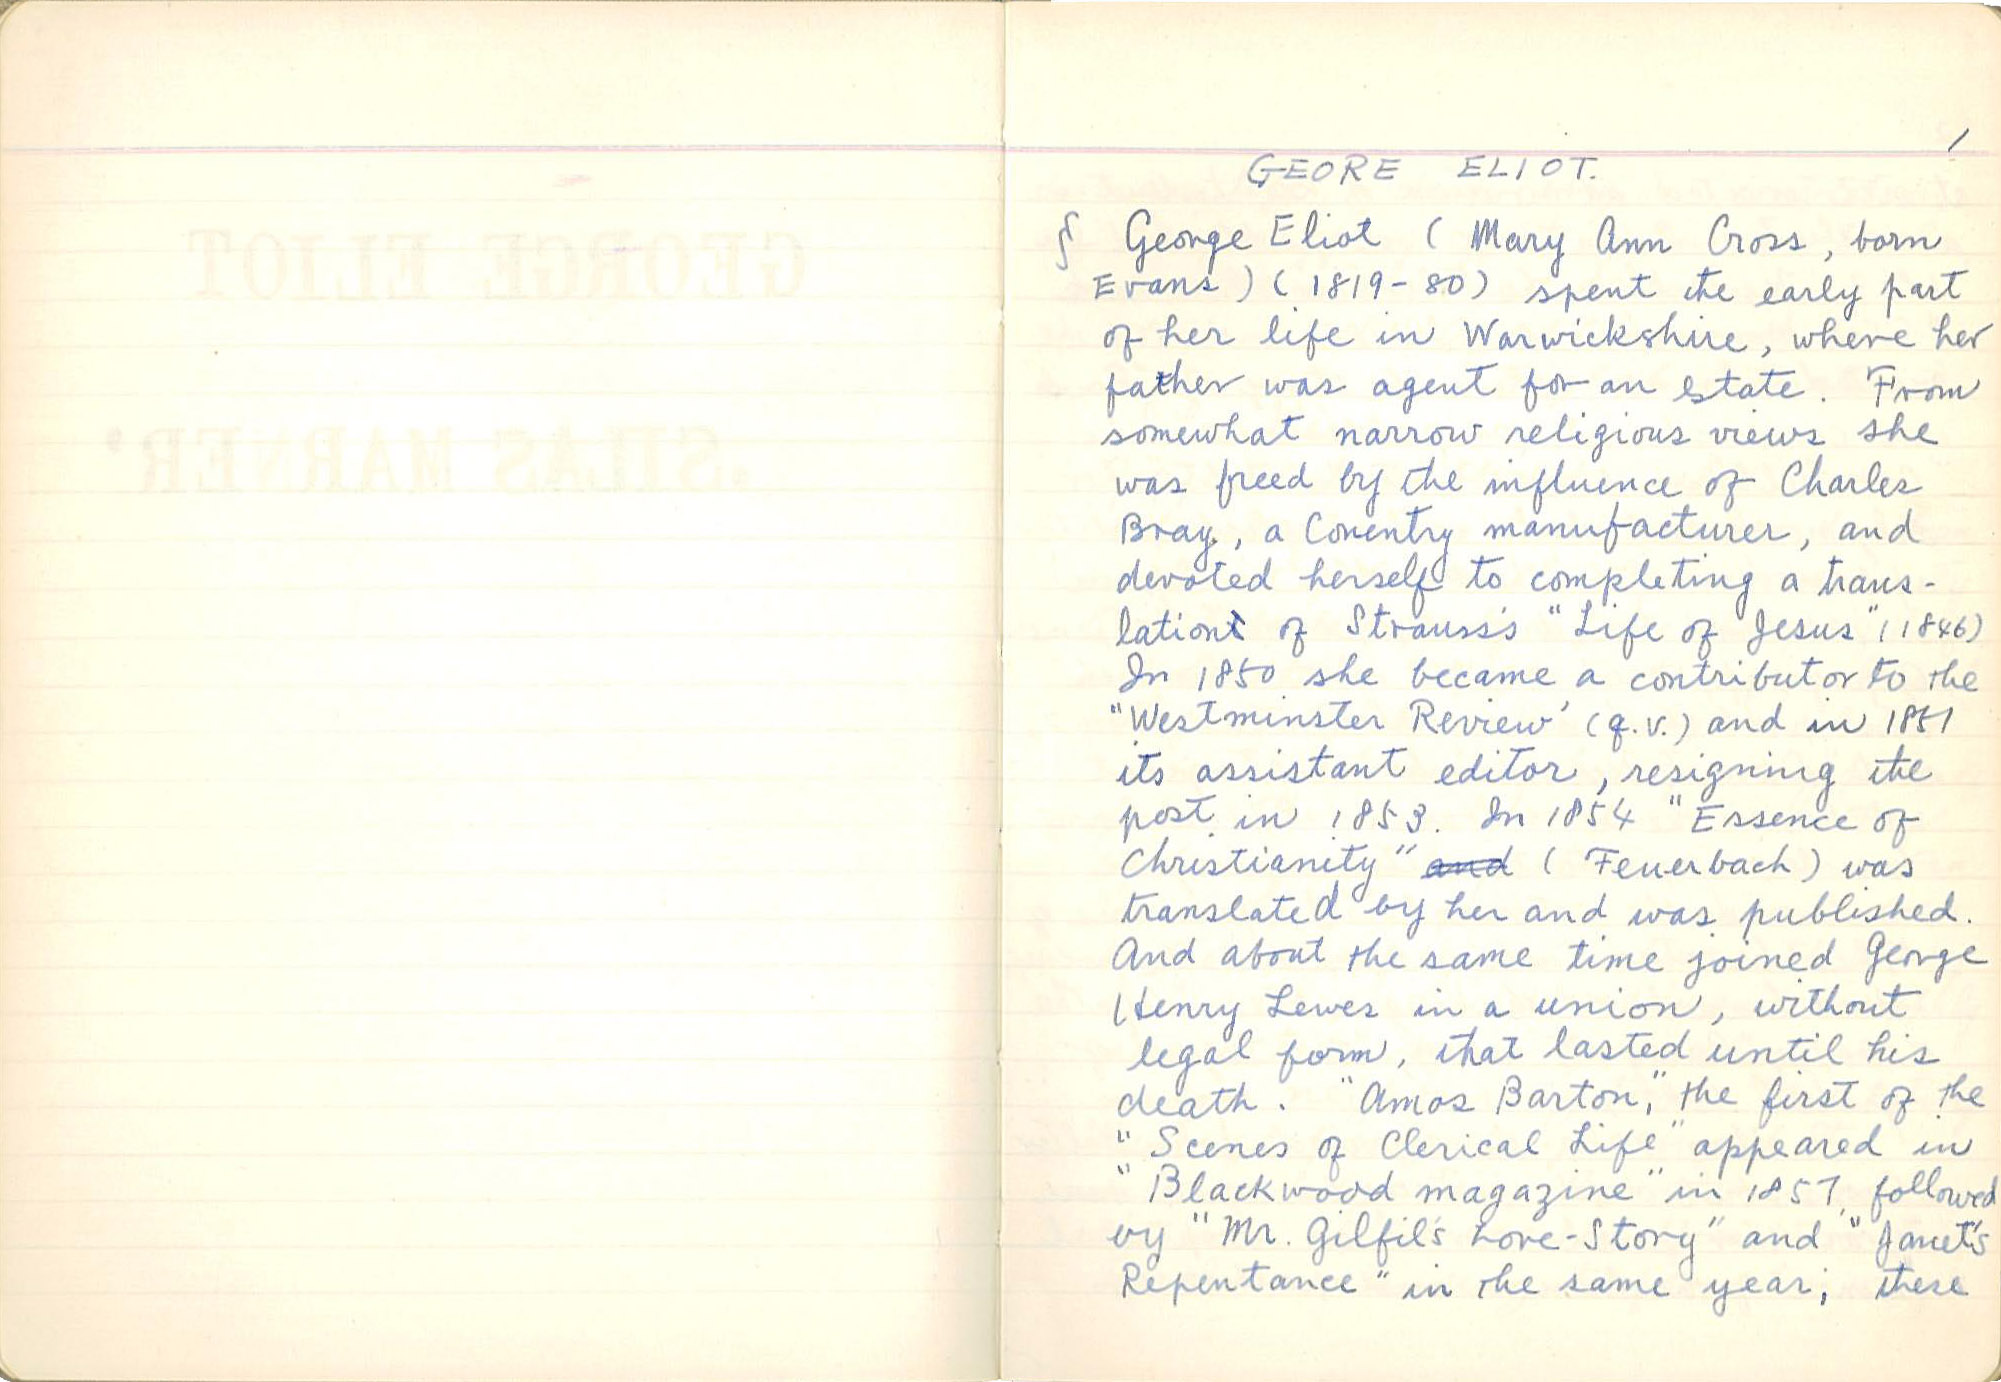 GEORGE ELIOT
'SILAS MARNER'
1
GEORE ELIOT.
§ George Eliot ( Mary Ann Cross, born
Evans ) ( 1819-80) spent the early part
of her life in Warwickshire, where her
father was agent for an Estate. From
somewhat narrow religious views she
was freed by the influence of Charles
Bray, a Coventry manufacturer, and
devoted herself to completing a trans-
lation of Strauss's "Life of Jesus" (1846)
In 1850 she became a contributor to the
"Westminster Review' (q.v.) and in 1851
its assistant editor, resigning the
post in 1853. In 1854 "Essence of
Christianity" and ( Feuerbach) was
translated by her and was published.
And about the same time joined George
Henry Lewes in a union, without
legal form, that lasted until his
death. "Amos Barton," the first of the
"Scenes of Clerical Life" appeared in
"Blackwood magazine" in 1857, followed
by "Mr. Gilfil's Love-Story" and "Janet's
Repentance" in the same year; these